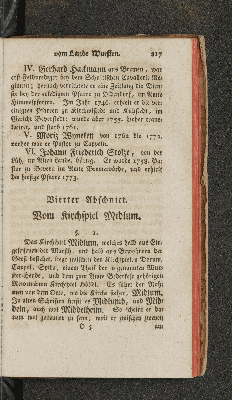 vom Lande Wursten. 217
IV. Gerhard Hackmann aus Bremen, war
erst Feldprediger bey dem Schel'tischen Cavallerie Re-
giment; hernach verrichtete er eine Zeitlang die Dien-
ste bey der erledigten Pfarre zu Oldendorf, im Amte
Himmelpforten. Im Jahr 1746. erhielt er die ver-
einigten Pfarren zu Kirchwistedt und
Gericht Beverstedt; wurde aber 1755. hieher trans-
ferirt, und starb 1761.
V. Moriz Wyneken von 1762 bis 1772.
vorher war er Pastor zu Cappeln.
VI. Johann Friederich Stolze, von der
Lüh, im Alten Lande, bürtig. Er wurde 1758. Pa-
stor zu Bevern im Amte Bremervörde, und erhielt
die hiesige Pfarre 1773.
Vierter Abschnitt.
Vom Kirchspiel Midlum.
§. 1.
Das Kirchspiel Midlum, welches halb aus Ein-
gesessenen der Marsch, und halb aus Bewohnern der
Geest bestehet, liegt zwischen den Kirchspielen Dorum,
Cappel, Spika, einem Theil der so genannten Wur-
sterheyde, und dem zum Amte Bederkese gehörigen
Reformirten Kirchspiel Holßel. Es führt den Nah-
men von dem Orte, wo die Kirche stehet, Midlum.
In alten Schriften heist es Midlumb, und Mid-
deln, auch wol Middelheim. So scheint er dar-
um wol genannt zu seyn, weil er zwischen zweyen
O 5 am